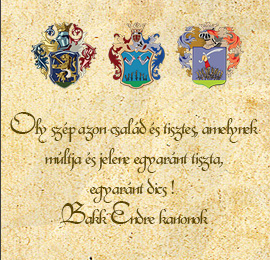 Oly szép azon család és tisztes, amelynek
múltja és jelene egyaránt tiszta,
egyaránt dics !
Bakk Endre kanonok